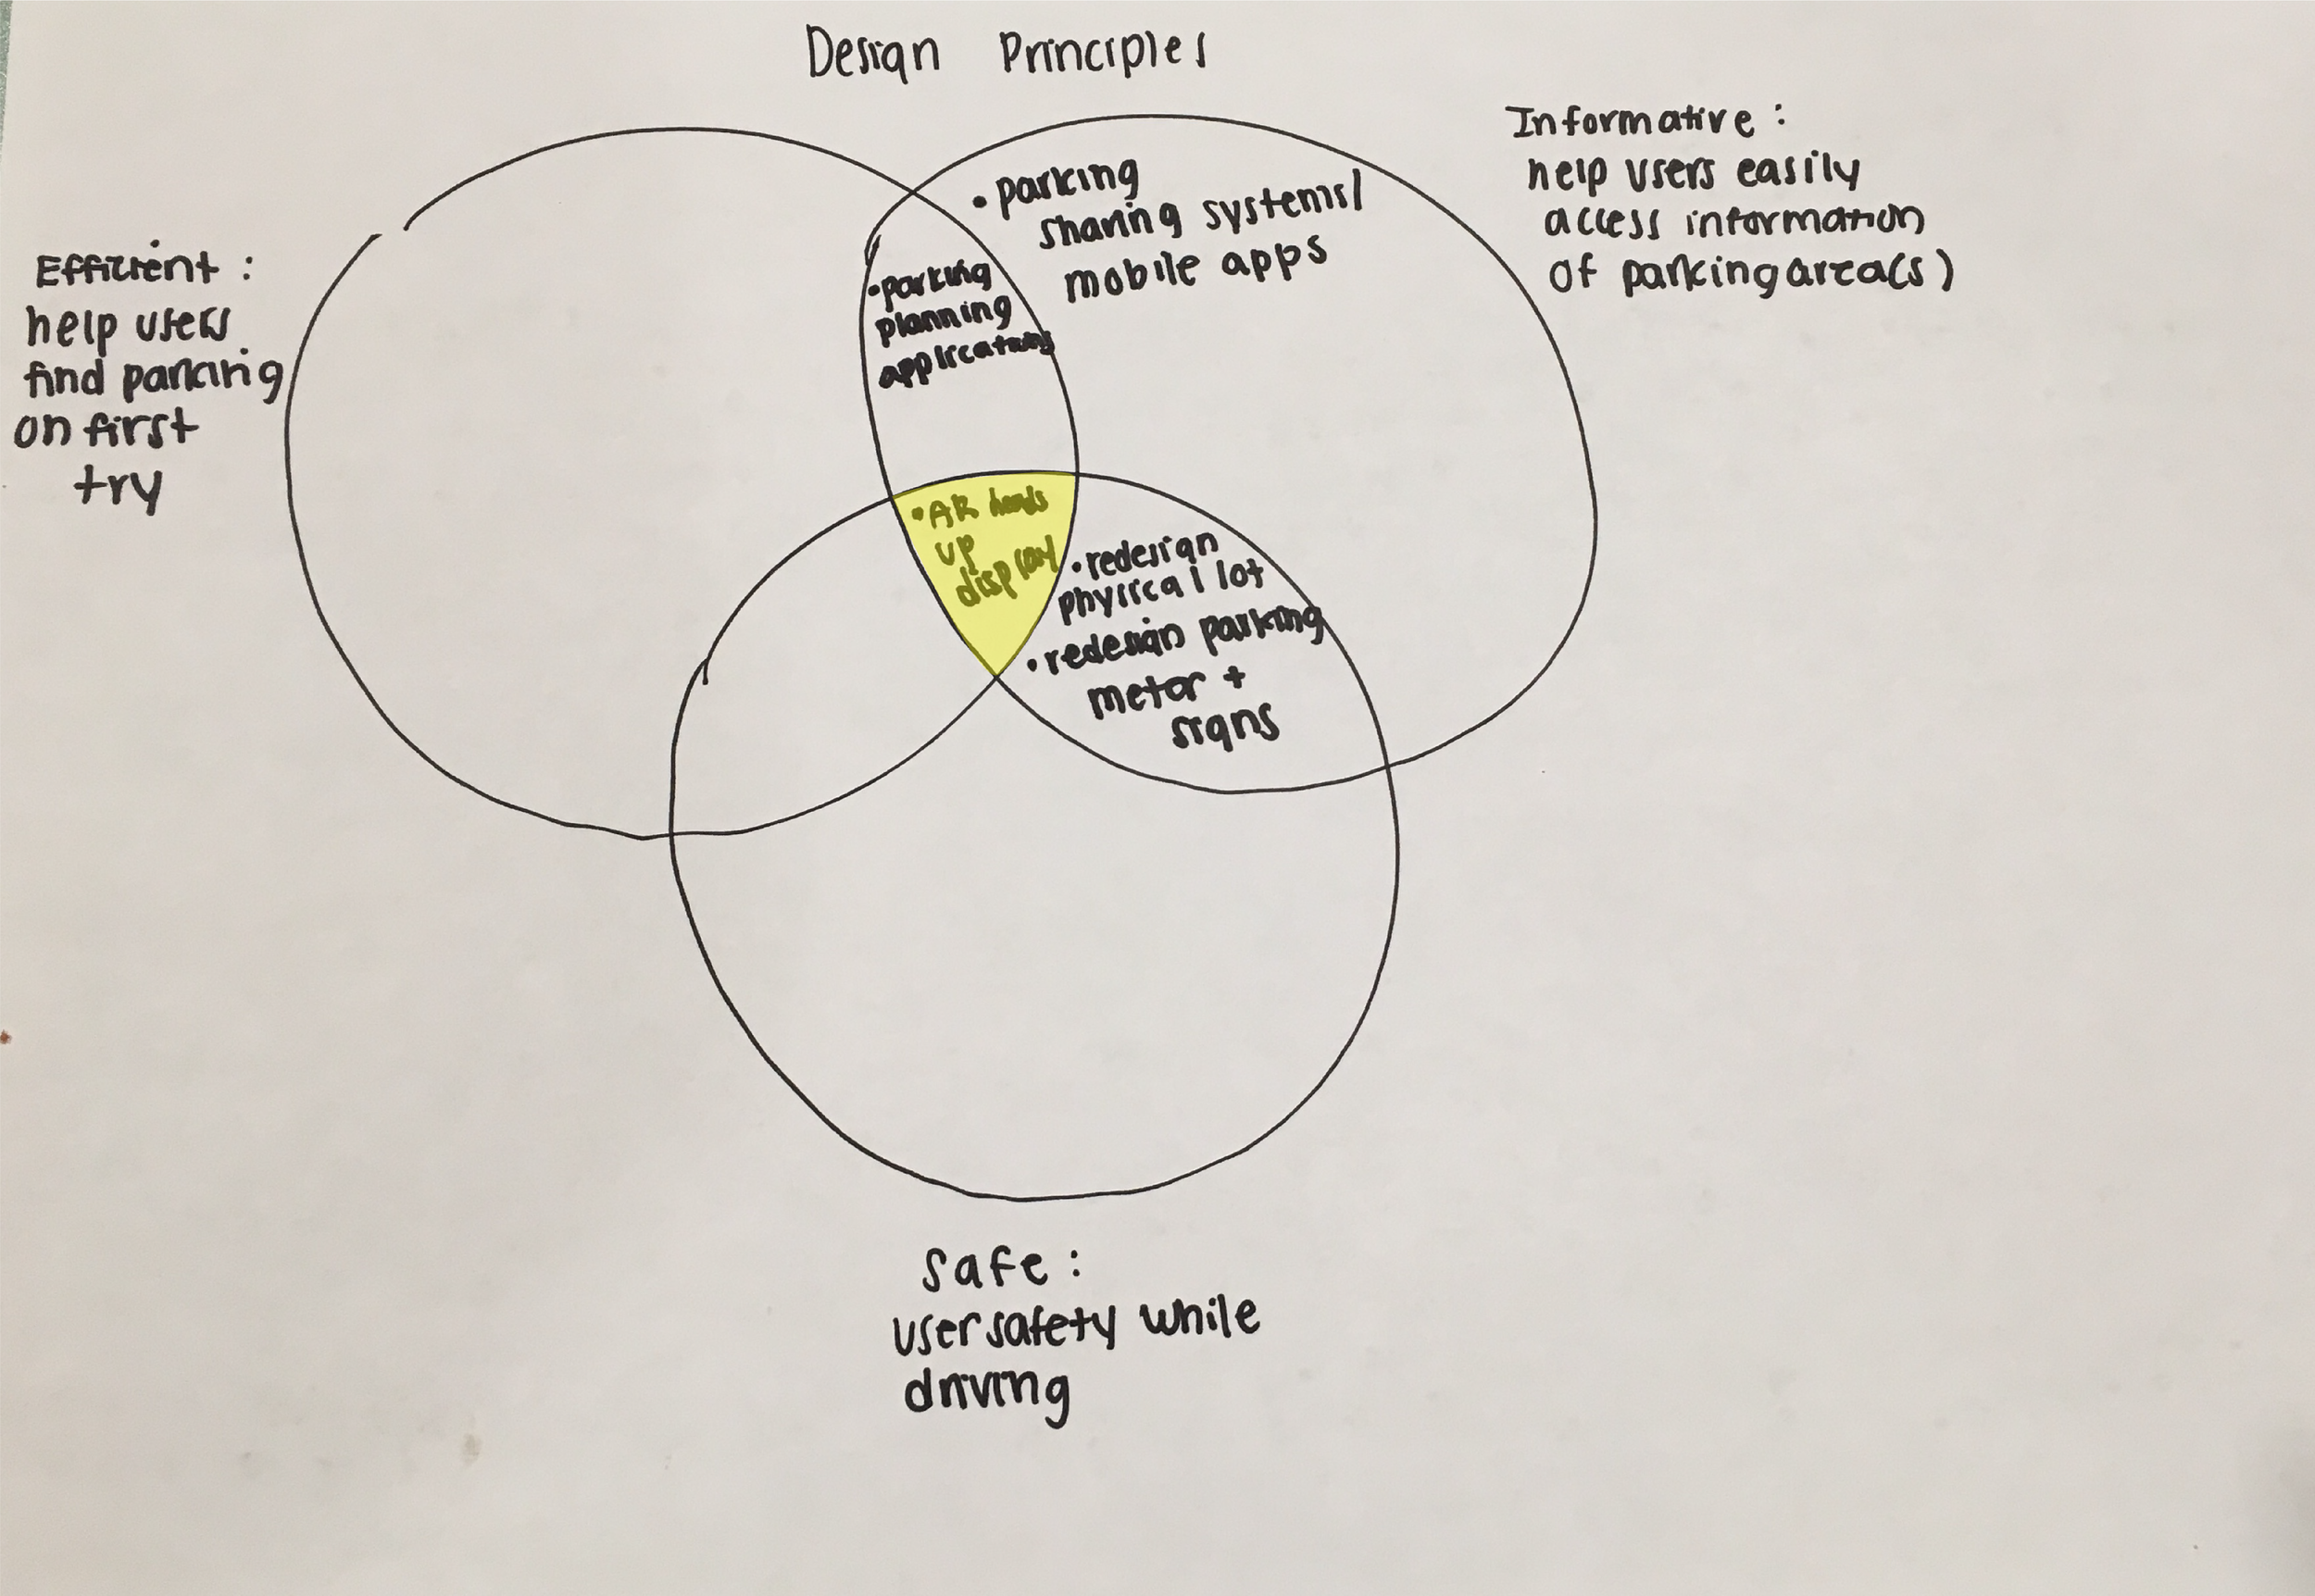 Design Principles
Efficient :
help users
find parking
on first
try
Informative :
help users easily
access information
of parking area(s)
• parking
sharing systems/
mobile apps
• parking
planning
applications
• AR heads
up
display
• redesign
physical lot
• redesign parking
meter +
signs
Safe :
user safety while
driving